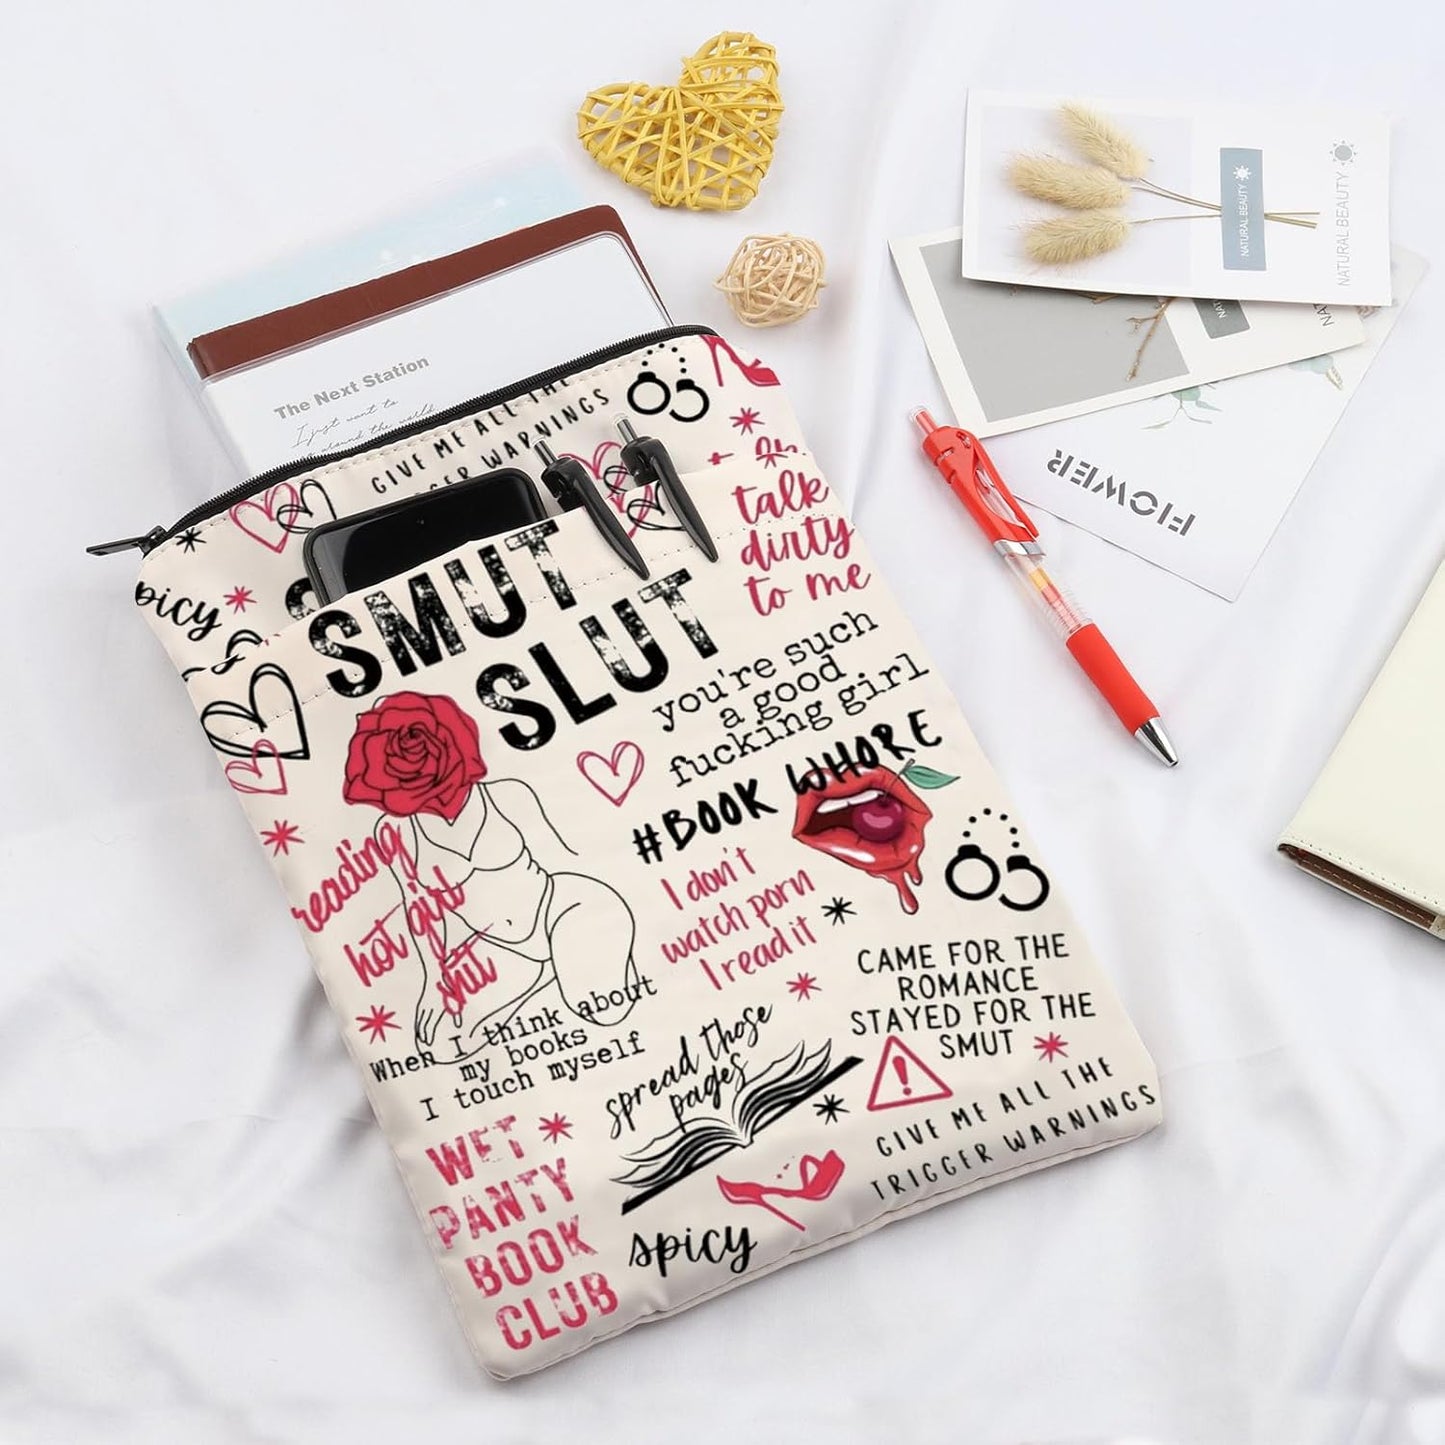 NATURAL BEAUTY
NATURAL BEAUTY
NAT
FlOWER
The Next Station
I just want to
around the world
GIVE ME ALL THE
TRIGGER WARNINGS
talk
picy
SMUT
SLUT
talk
dirty
to me
you're such
a good
fucking girl
#BOOK WHORE
reading
hot girl
shit
I don't
watch porn
I read it
CAME FOR THE
ROMANCE
STAYED FOR THE
SMUT
When I think about
my books
I touch myself
spread those
pages
GIVE ME ALL THE
TRIGGER WARNINGS
WET
PANTY
BOOK
CLUB
spicy